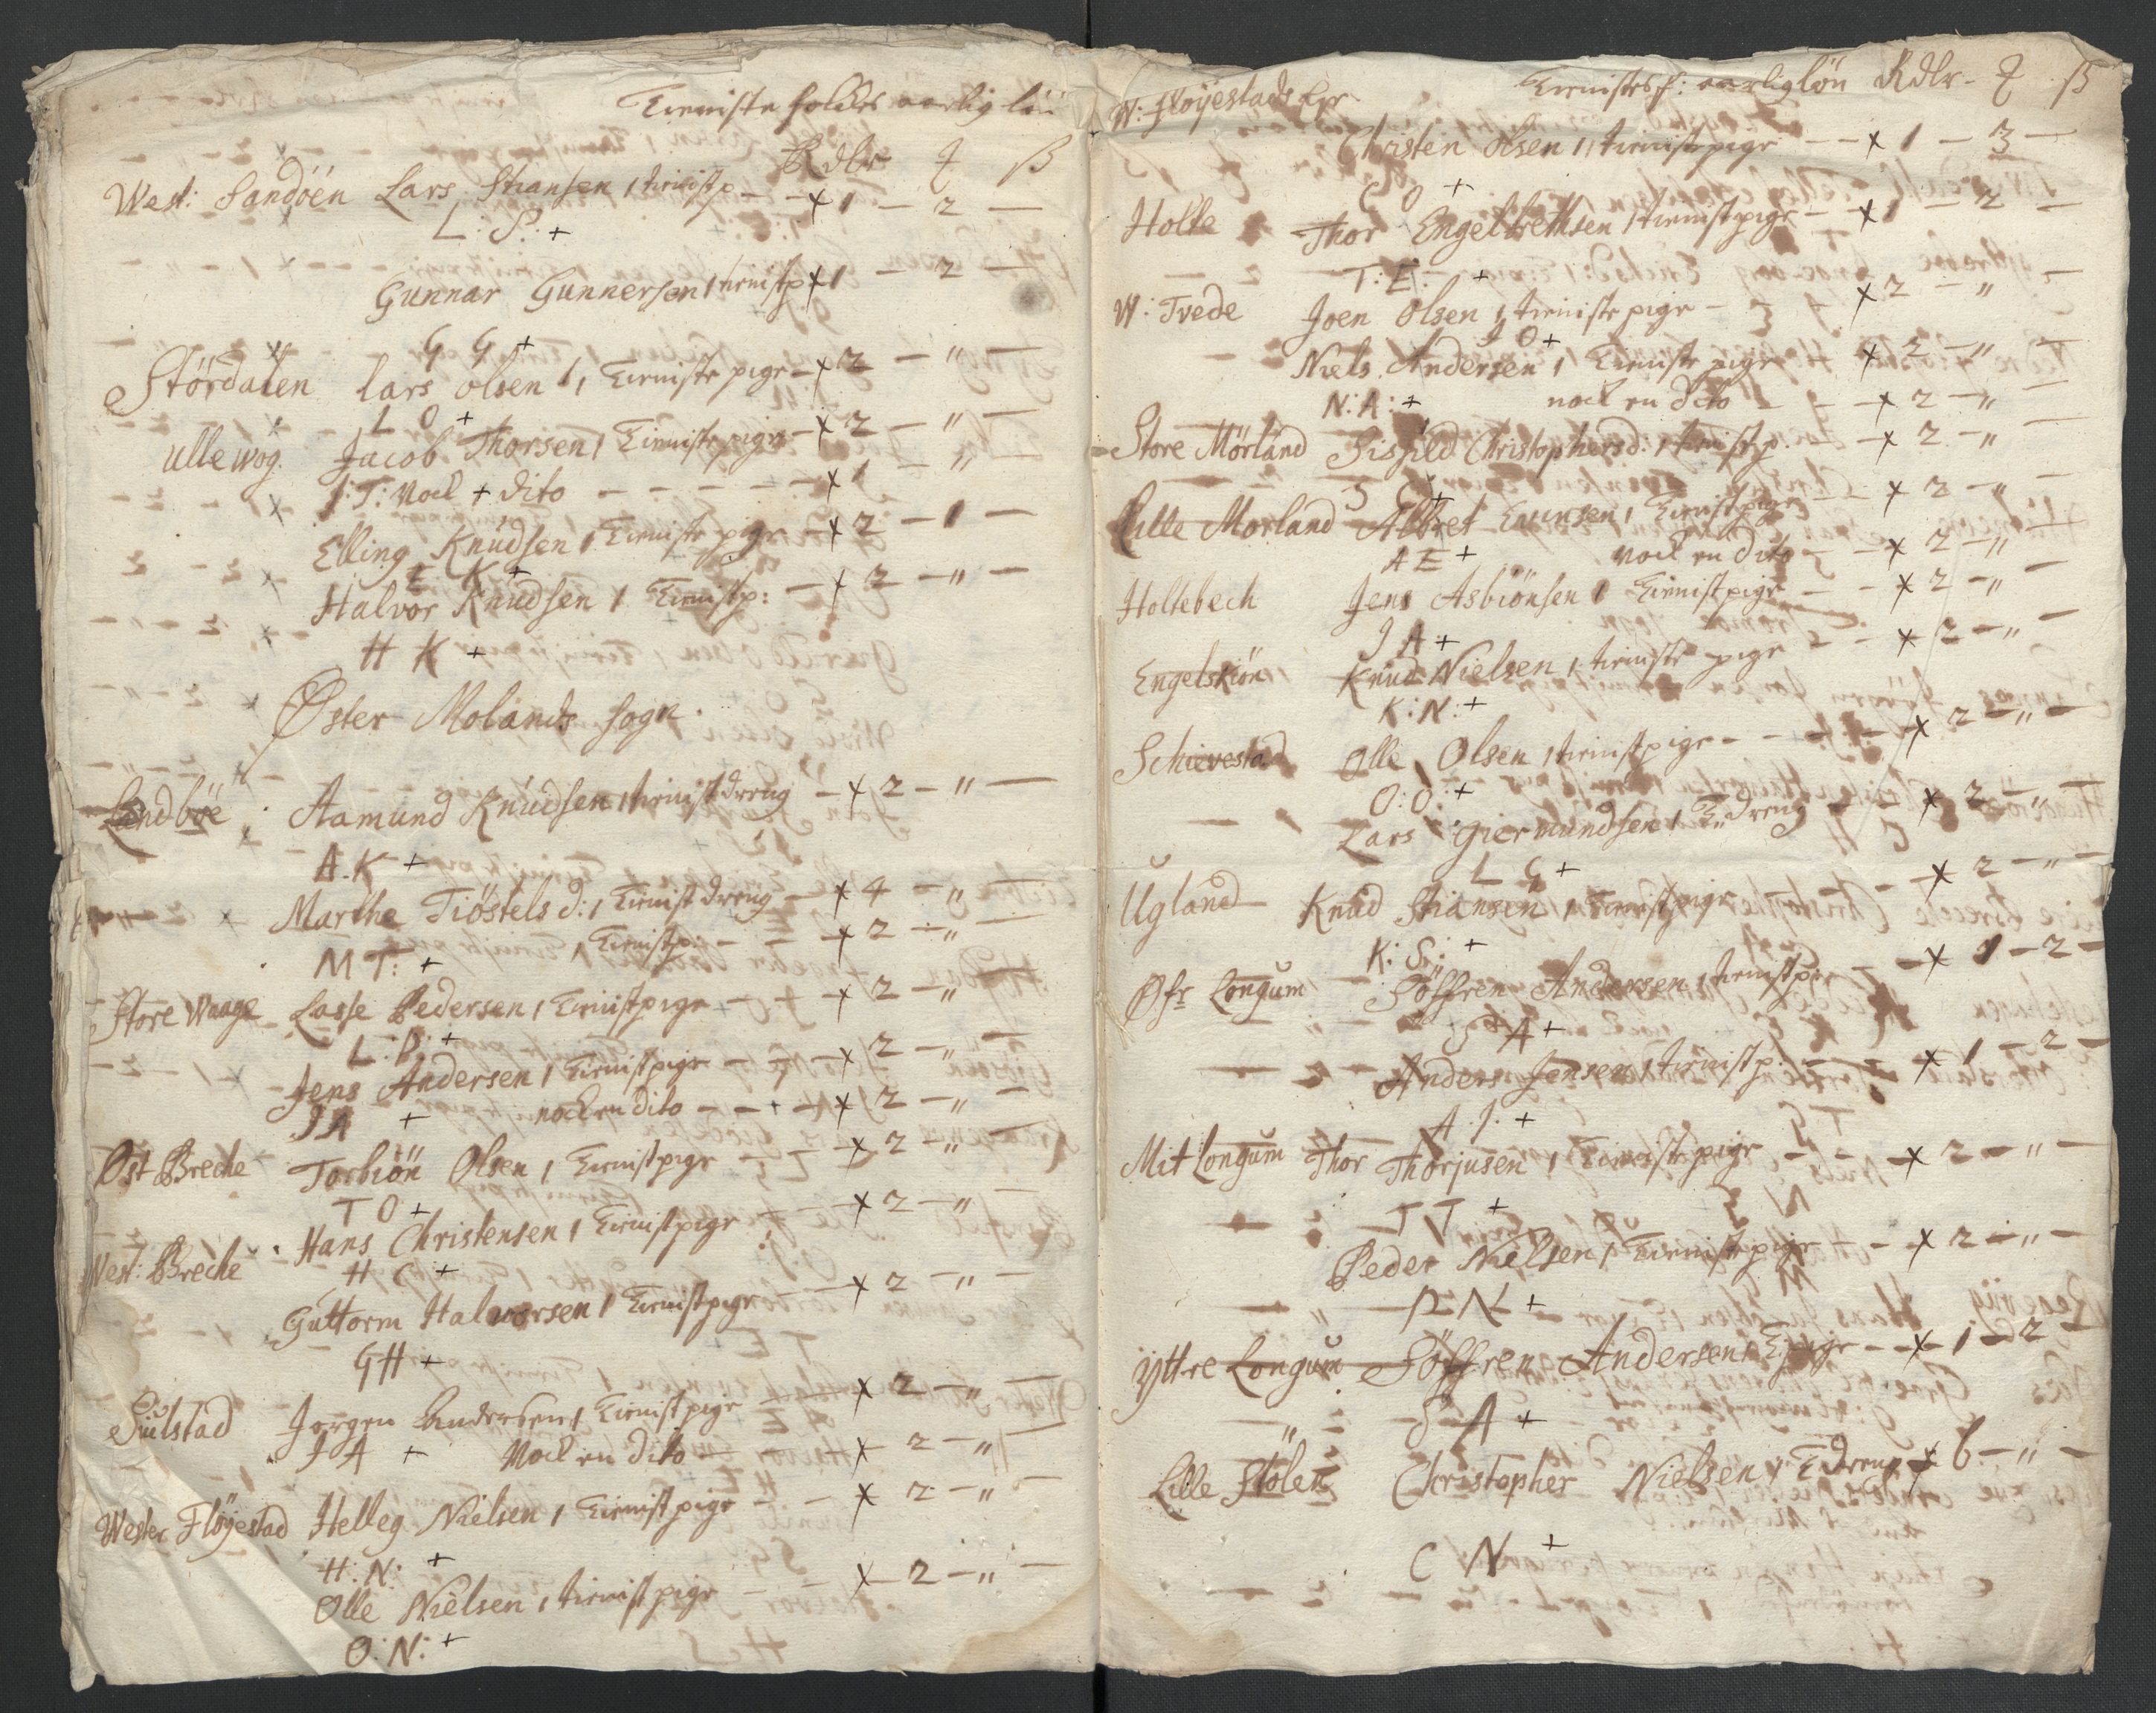 Tieniste folckes aarlig løn
Rdlr ß
West: Sandöen Lars Stiansen 1 tienistp – x 1 – 2 –
L: S: +
Gunnar Gunnersen 1 tienistp x 1 – 2 –
G G +
Stördalen Lars Olsen 1, Tieniste pige – x 2 – " –
L O +
Ullewog Jacob Thorsen 1 Tieniste pige – x 2 – " –
I: T: Nock + dito – – – – – x 1 – " –
Elling Knudsen 1 Tieniste pige – x 2 – 1 –
E K +
Halvor Knudsen 1 Tienistp: – x 2 – " –
H K +
Øster Molands Sogn
Landbøe Aamund Knudsen 1 tienist dreng – x 2 – " –
A. K +
Marthe Tiöstels d: 1 Tienist dreng – x 4 – " –
1 Tienistp: – – x 2 – " –
M T: +
Store Waage Lasse Pedersen 1 Tienistpige – – x 2 – " –
L: P: +
Jens Andersen 1 Tienistpige – – x 2 – " –
J A + nock en dito – – – x 2 – " –
Øst Breche Torbiön Olsen 1 Tienistpige – x 2 – " –
T O +
Hans Christensen 1 Tienistpige – x 2 – " –
West: Breche H C +
Guttorm Halworsen 1 Tienistpige – x 2 – " –
G H +
Siulstad Jorgen Andersen 1 Tienistpige – x 2 – " –
J A + Nock en dito – – x 2 – " –
Wester Fløyestad Helleg Nielsen 1 Tienistpige – – x 2 – " –
H: N: +
Olle Nielsen 1 tienistpige – – x 2 – " –
O: N: +
W: Fløyestads Tienistes f: aarlig løn Rdlr – ß
Christen Olsen 1 tienistpige – – x 1 – 3 –
C O +
Holte Thor Engelbrethsen 1 tienistpige – x 1 – 2 –
T: E: +
W: Tvede Joen Olsen 1 tieniste pige – x 2 – " –
J O +
Niels Andersen 1 Tieniste pige x 2 – " –
N: A: + nock en dito – – x 2 – "
Store Mörland Sisjild Christophersd: 1 tienistp: – x 2 – " –
S C +
Lille Morland Albret Evensen 1 Tienistpige – x 2 – " –
A E + Nock en dito – x 2 – "
Holtebech Jens Asbiönsen 1 Tienistpige – – x 2 – " –
J A +
Engelskiön Knud Nielsen 1 tieniste pige – – x 2 – " –
K: N: +
Schievestad Olle Olsen 1 tienistpige – – – x 2 – " –
O: O: +
Lars Giermundsen 1 T: dreng – – x 2 – " –
L G +
Ugland Knud Stiansen 1 Tienistpige – x 2 – " –
K: S: +
Øfr Longum Söffren Andersen 1 tienistpige – x 1 – 2 –
S A +
Anders Jensen 1 tienistp: – – x 1 – 2 –
A. J. +
Mit Longum Thor Thorjusen 1 Tienistepige – – x 2 – " –
T T +
Peder Nielsen 1 Tienistpige – x 2 – " –
P N +
Yttre Longum Söffren Andersen 1 T: pige – – x 1 – 2 –
" S A +
Lille Stölen Christopher Nielsen 1 T dreng x 6 – " –
C N +